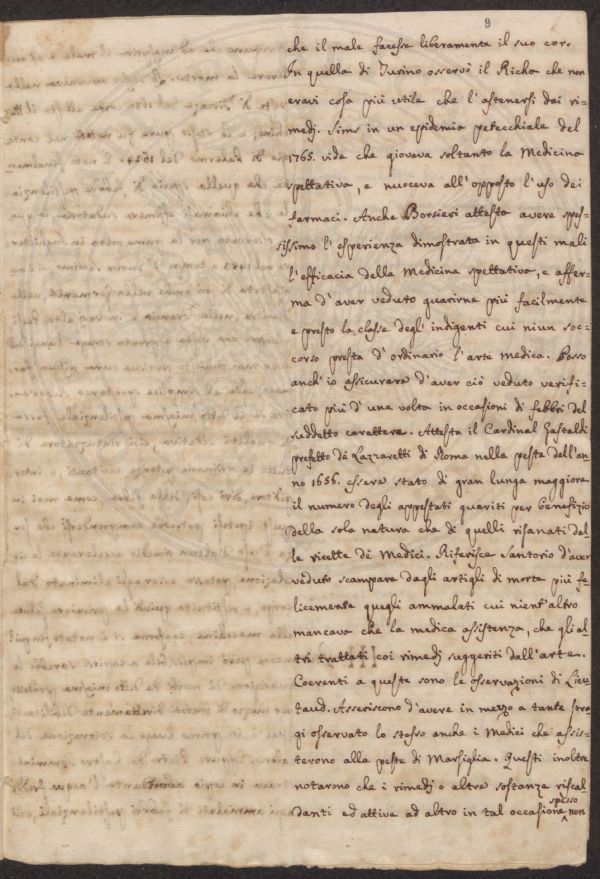 9
che il male facesse liberamente il suo cor-
In quella di Turino osservò il Richa che non
eravi cosa più utile che l'astenersi dai ri-
medj. Sims in un epidemia petecchiale del
1765. vide che giovava soltanto la Medicina
spettativa, e nuoceva all'opposto l'uso dei
farmaci. Anche Borsieri attesta avere spes-
sissimo l'esperienza dimostrata in questi mali
l'efficacia della Medicina spettativa, e affer-
ma d'aver veduto guarirne più facilmente
e presto la classe degl'indigenti cui niun soc-
corso presta d'ordinario l'arte medica. Posso
anch'io assicurare d'aver ciò veduto verifi-
cato più d'una volta in occasioni di febbri del
suddetto carattere. Attesta il Cardinal Gastaldi
prefetto dè Lazzaretti di Roma nella peste dell'an
no 1656. essere stato di gran lunga maggiore
il numero degli appestati guariti per benefizio
della sola natura che di quelli risanati dal-
le ricette dè Medici. Riferisce santorio d'aver
veduto scampare dagli artigli di morte più fe-
licemente quegli ammalati cui nient'altro
mancava che la medica assistenza, che gli al
tri trattati coi rimedj suggeriti dall'arte.
Coerenti a queste sono le osservazioni di Lieu-
taud. Asseriscono d'avere in mezzo a tante stra-
gi osservato lo stesso anche i Medici che assis-
terono alla peste di Marsiglia. Questi inoltre
notarono che i rimedj o altre sostanze riscal
danti ed attive ad altro in tal occasione spesso non